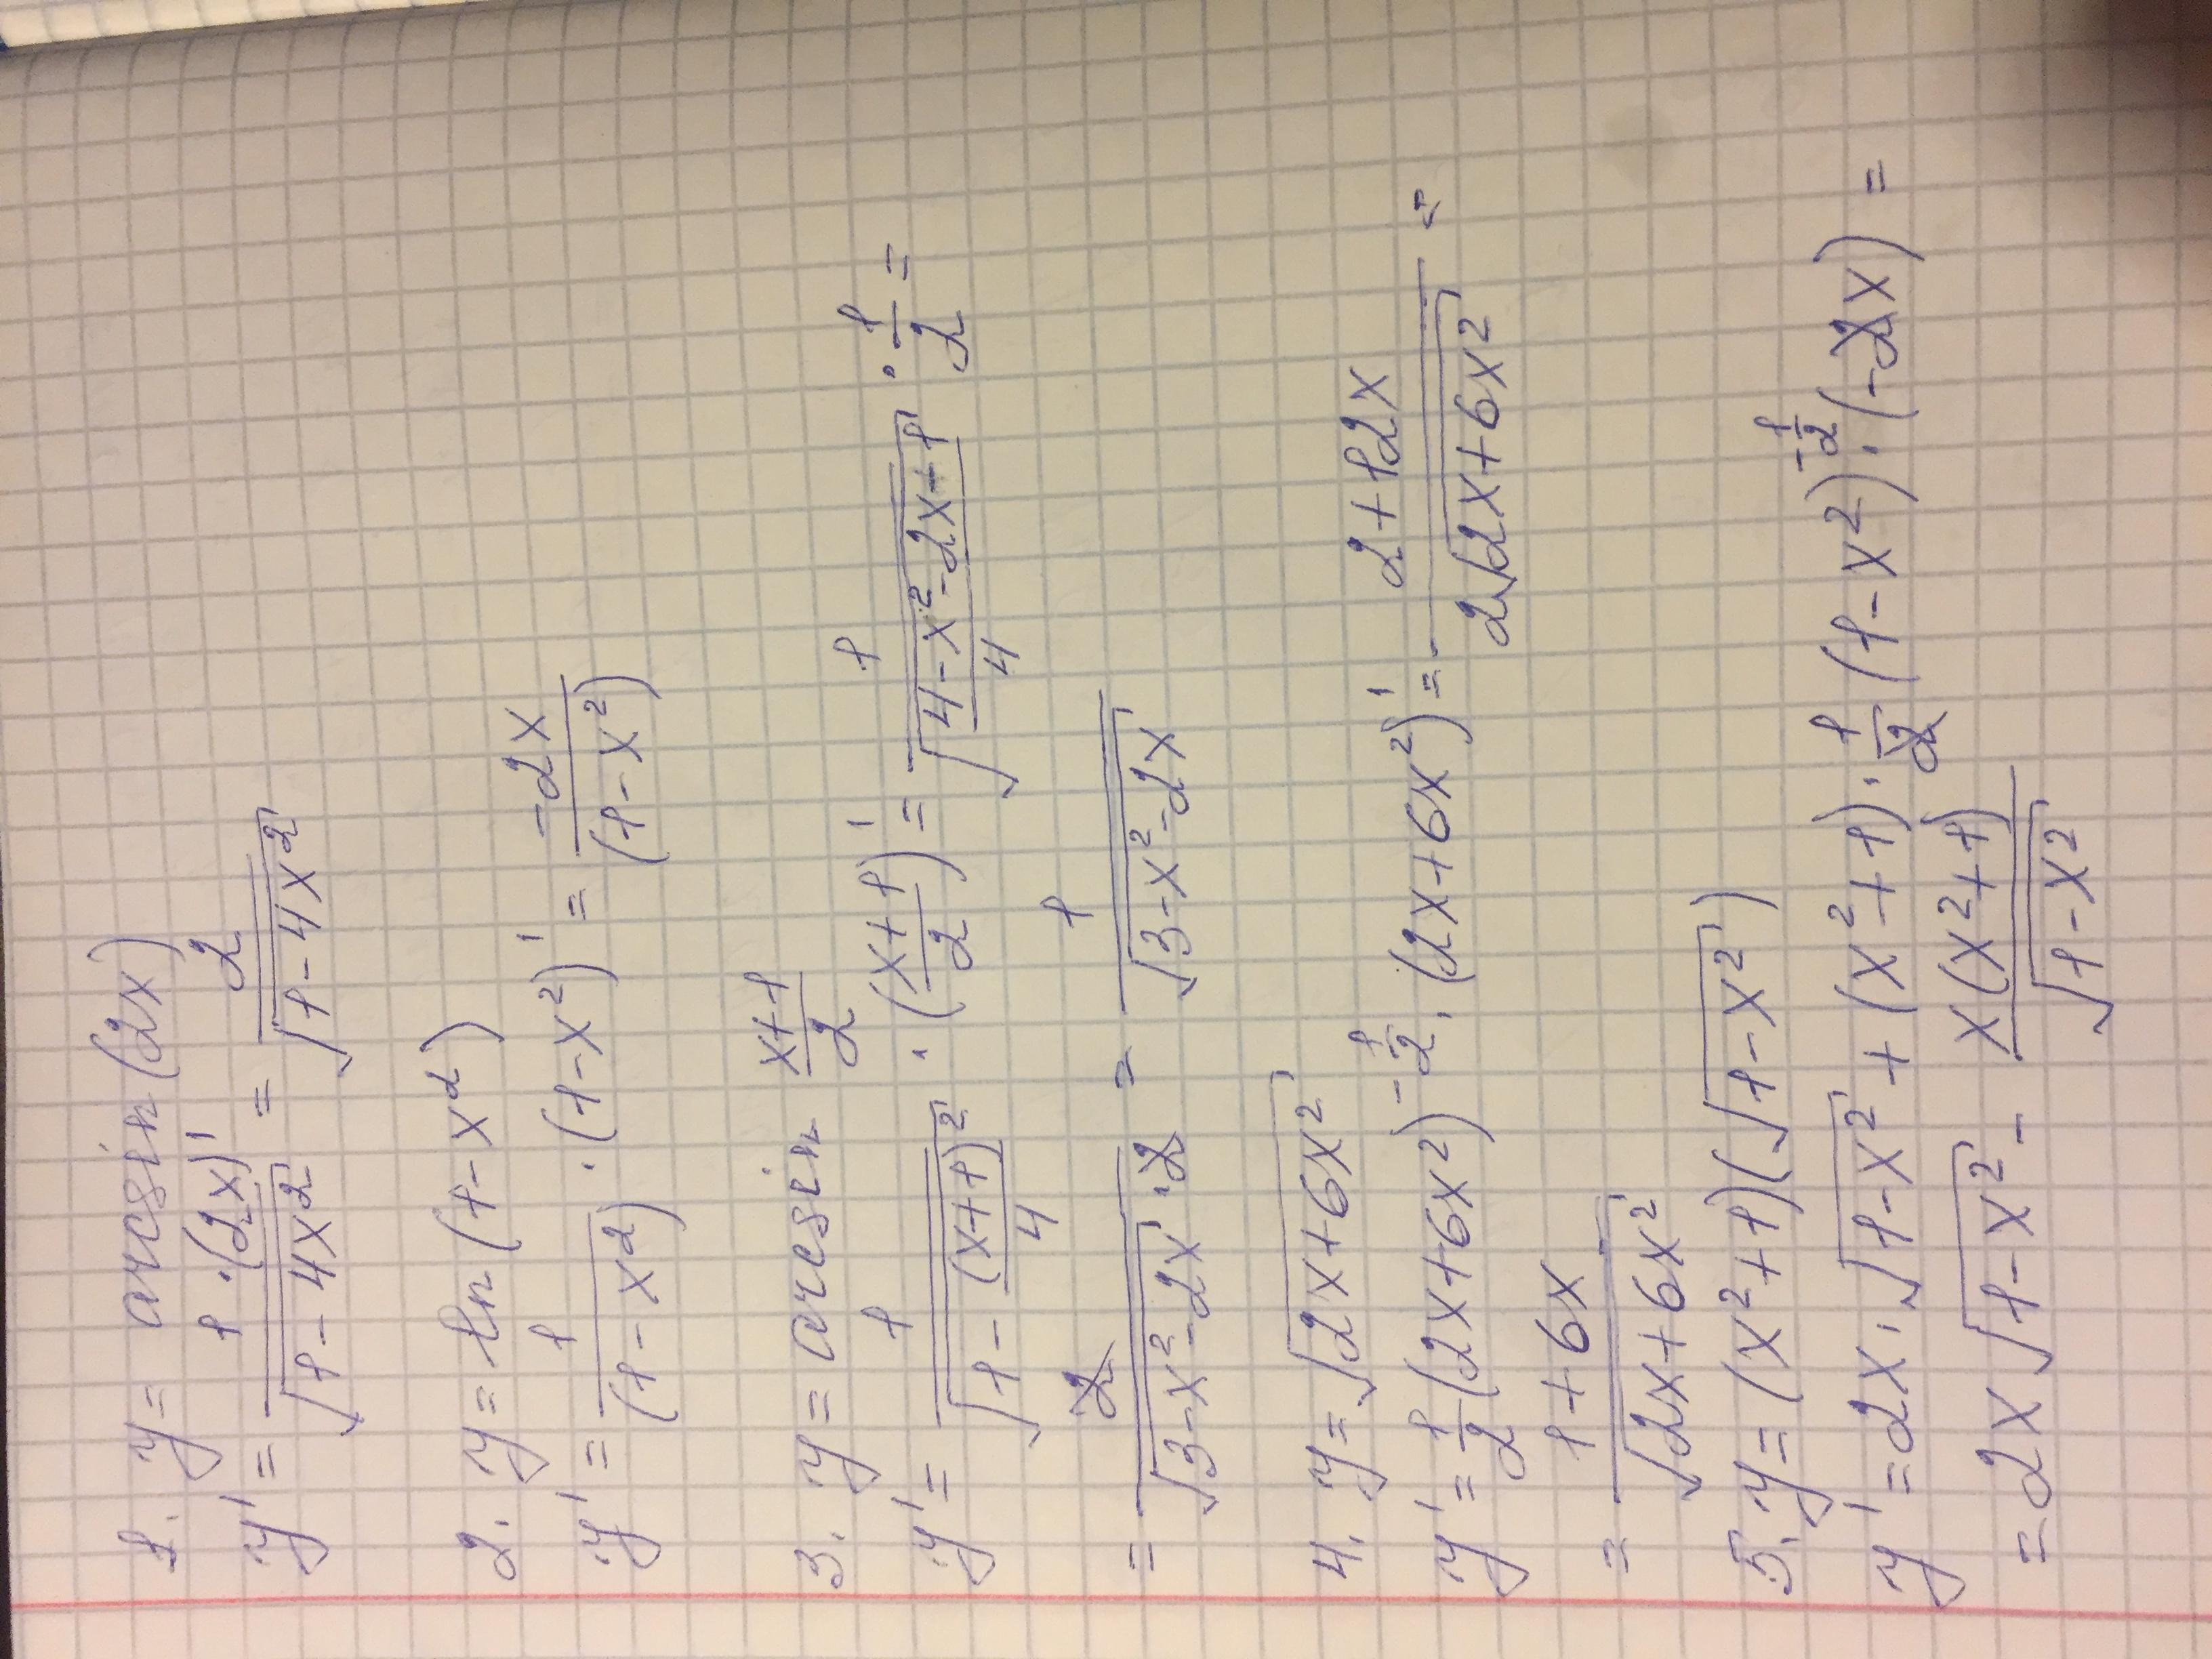 1. y = arcsin (2x)
y' = 1/√(1-4x²) · (2x)' = 2/√(1-4x²)
2. y = ln (1-x²)
y' = 1/(1-x²) · (1-x²)' = -2x/(1-x²)
3. y = arcsin (x+1)/2
y' = 1/√(1-(x+1)²/4) · ((x+1)/2)' = 1/√((4-x²-2x+1)/4) · 1/2 =
= 2/(√(3-x²-2x) · 2) = 1/√(3-x²-2x)
4. y = √(2x+6x²)
y' = 1/2 (2x+6x²)^(-1/2) · (2x+6x²)' = (2+12x)/(2√(2x+6x²)) =
= (1+6x)/√(2x+6x²)
5. y = (x²+1)(√(1-x²))
y' = 2x · √(1-x²) + (x²+1) · 1/2 (1-x²)^(-1/2) · (-2x) =
= 2x√(1-x²) - x(x²+1)/√(1-x²)